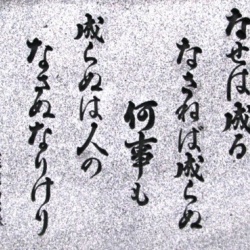 なせは成る
なさねば成らぬ
何事も
成らぬは人の
なさぬなりけり